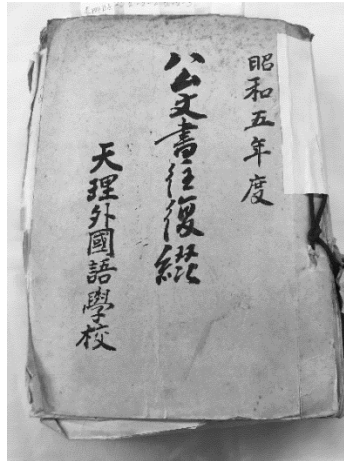 昭和五年度
公文書往復綴
天理外國語學校